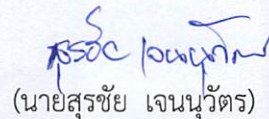 สุรชัย เจนนุวัตร
(นายสุรชัย เจนนุวัตร)